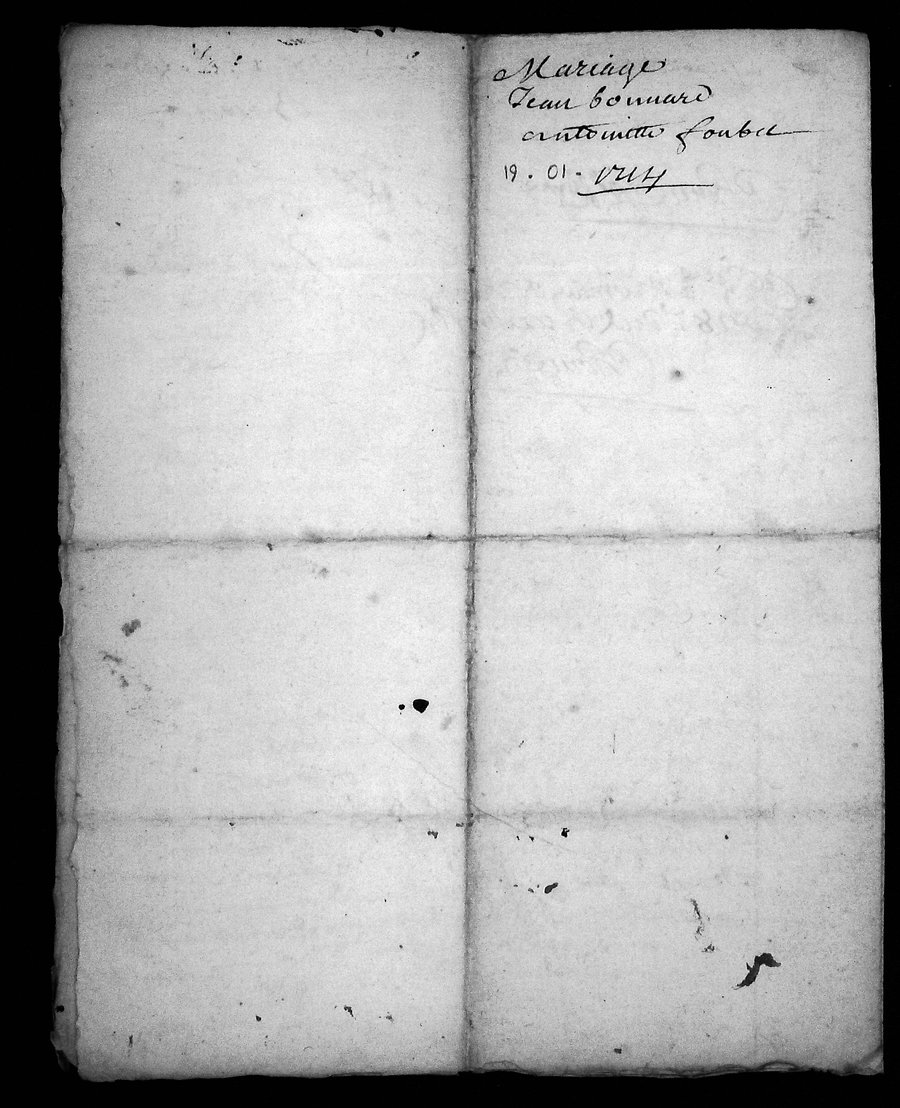 Mariage
Jean bonnard
antoinette foubet
19 . 01 - 1714